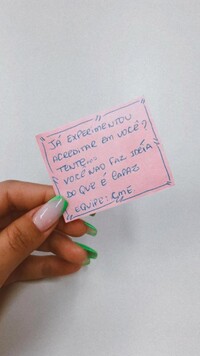 JÁ EXPERIMENTOU
ACREDITAR EM VOCÊ?
TENTE...
VOCÊ NÃO FAZ IDÉIA
DO QUE É CAPAZ
EQUIPE: CME